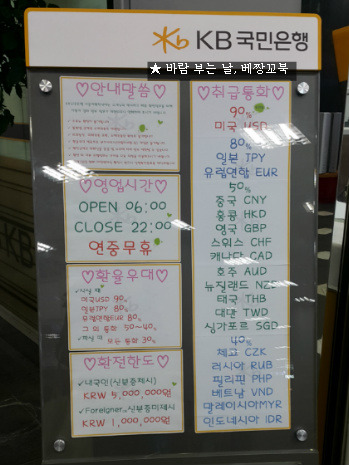 KB 국민은행
★ 바람 부는 날, 베짱꼬북
♡안내말씀♡
♡영업시간♡
OPEN 06:00
CLOSE 22:00
연중무휴
♡환율우대♡
미국USD 90%
일본JPY 80%
유럽연합EUR 80%
그 외 통화 50~40%
모든 통화 30%
♡환전한도♡
✓내국인(신분증제시)
KRW 5,000,000원
✓Foreigner
KRW 1,000,000원
♡취급통화♡
90%
미국 USD
80%
일본 JPY
유럽연합 EUR
50%
중국 CNY
홍콩 HKD
영국 GBP
스위스 CHF
캐나다 CAD
호주 AUD
뉴질랜드 NZD
태국 THB
대만 TWD
싱가포르 SGD
40%
체코 CZK
러시아 RUB
필리핀 PHP
베트남 VND
말레이시아MYR
인도네시아 IDR
KB